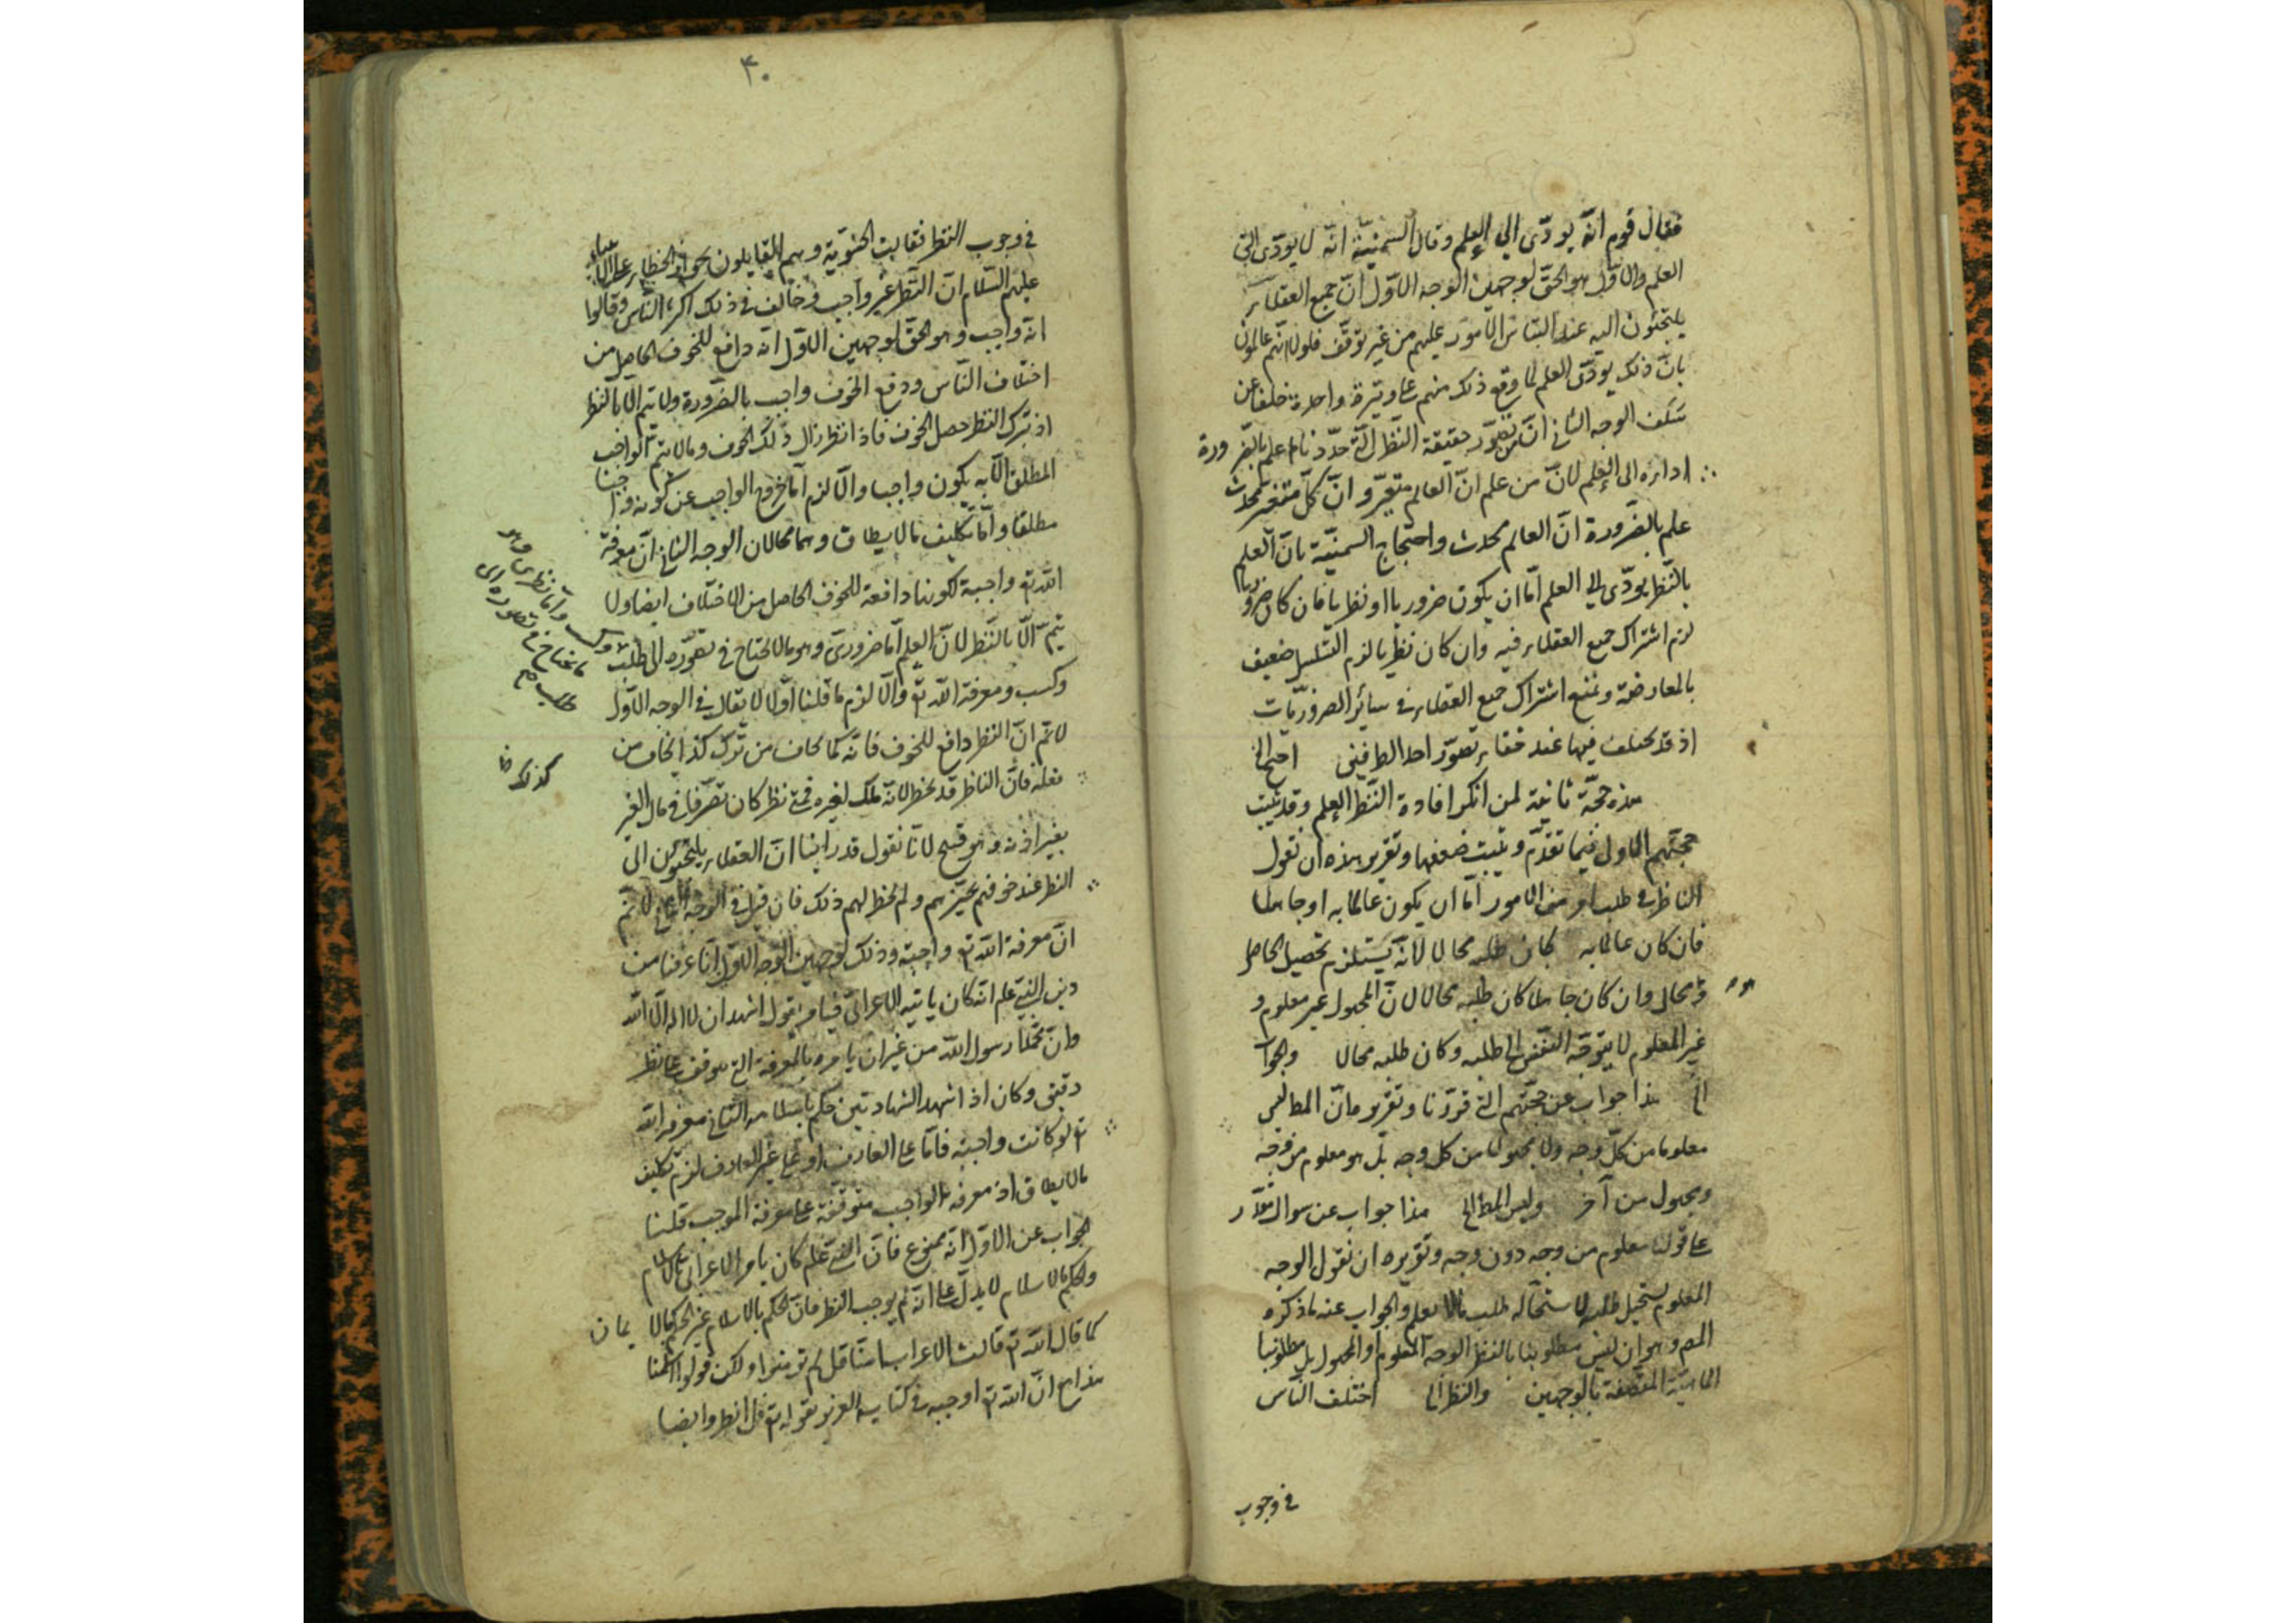 فقال قوم انّه يودّى الي العلم وقال السمنيّة انّه لا يودّى الى
العلم والاوّل هو الحقّ لوجهين الوجه الاوّل انّ جميع العقلاء
يلتجئون اليه عند التباس الامور عليهم من غير توقّف فلولا انّهم عالمون
بانّ ذلك يودّى العلم لما وقع ذلك منهم على وتيرة واحدة خلفا عن
سلف الوجه الثانى انّ من تصوّر حقيقة النّظر الّتى حدّدناه علم بالضّرورة
اداره الى العلم لانّ من علم انّ العالم متغيّر وانّ كلّ متغيّر محدث
علم بالضّرورة انّ العالم محدث واحتجاج السمنيّة بانّ العلم
بالنّظر يودّى الى العلم امّا ان يكون ضروريا او نظريا فان كان ضروريا
لزم اشتراك جميع العقلاء فيه وان كان نظريا لزم التسلسل ضعيف
بالمعارضة ونمنع اشتراك جميع العقلاء فى سائر الضروريّات
اذ قد يختلف فيها عند خفاء تصوّر احد الطرفين احتج الخ
هذه حجّة ثانية لمن انكر افادة النّظر العلم وقد ثبيت
حجّتهم الاولى فيما تقدّم وثبيت ضعفها وتقرير هذه ان نقول
الناظر فى طلب امر من الامور امّا ان يكون عالما به او جاهلا
فان كان عالما به كان طلبه محالا لانّه يستلزم تحصيل الحاصل
وهو محال وان كان جاهلا كان طلبه محالا لانّ المجهول غير معلوم و
غير المعلوم لا يتوجّه النّفس الى طلبه وكان طلبه محالا والجواب
الخ هذا جواب عن حجّتهم التى قرّرنا وتقريره انّ المط ليس
معلوما من كلّ وجه ولا مجهولا من كل وجه بل هو معلوم من وجه
ومجهول من آخر وليس المط الخ هذا جواب عن سوال مقدّر
على قولنا معلوم من وجه دون وجه وتقريره ان نقول الوجه
المعلوم يستحيل طلبه لاستحالة طلب ما لا يعلم والجواب عنه ما ذكره
المص وهو ان ليس مطلوبنا بالنظر الوجه المعلوم او المجهول بل مطلوبنا
الماهيّة المتّصفة بالوجهين والنظر الخ اختلف النّاس
فى وجوب
۴۰
فى وجوب النظر فقالت الحشويّة وهم القايلون بجواز الخطاء على الانبياء
عليهم السّلام انّ النّظر غير واجب وخالف فى ذلك اكثر النّاس وقالوا
انّه واجب وهو الحقّ لوجهين الاوّل انّه دافع للخوف الحاصل من
اختلاف النّاس ودفع الخوف واجب بالضّرورة ولا يتم الا بالنظر
اذ بترك النظر حصل الخوف فاذا نظر زال ذلك الخوف وما لا يتم الواجب
المطلق الّا به يكون واجبا والّا لزم امّا خروج الواجب عن كونه واجبا
مطلقا وامّا تكليف ما لا يطاق وهما محالان الوجه الثانى انّ معرفة
اللّه تع واجبة لكونها دافعة للخوف الحاصل من الاختلاف ايضا ولا
يتمّ الّا بالنّظر لانّ العلم امّا ضرورىّ وهو ما لا يحتاج فى تصوّره الى طلب
وكسب ومعرفة اللّه تع والّا لزم ما قلنا اوّلا لا يقال فى الوجه الاوّل
لا نم انّ النظر دافع للخوف فانّه كما يخاف من تركه كذا يخاف من
فعله فانّ الناظر قد يخطر انّه ملك لغيره فمتى نظر كان تصرّفا فى مال الغير
بغير اذنه وهو قبيح لانّا نقول قد رأينا انّ العقلاء يلتجئون الى
النظر عند خوفهم وتحيّرهم ولم يخطر لهم ذلك فان قيل فى الوجه الثانى لا نم
انّ معرفة اللّه تع واجبة وذلك لوجهين الوجه الاوّل انّا عرفنا من
دين النّبى علم انّه كان ياتيه الاعرابى فيامره بقول اشهد ان لا اله الّا اللّه
وانّ محمّدا رسول اللّه من غير ان يامره بالمعرفة التى تتوقف على نظر
دقيق وكان اذا شهد الشهادتين حكم باسلامه الثانى معرفة اللّه
تع لو كانت واجبة فامّا على العارف او على غير العارف لزم تكليف
ما لا يطاق اذ معرفة الواجب متوقفة على معرفة الموجب قلنا
الجواب عن الاوّل انّه ممنوع فانّ النّبى علم كان يامر الاعرابى بالاسلام
والحكم بالاسلام لا يدلّ على انّه لم يوجب النظر فانّ الحكم بالاسلام غير الحكم بالايمان
كما قال اللّه تع قالت الاعراب امنّا قل لم تومنوا ولكن قولوا اسلمنا
هذا مع انّ اللّه تع اوجبه فى كتابه العزيز بقوله تع قل انظروا وايضا
وكسب وامّا نظرى وهو
ما يحتاج فى تصوره الى
طلب صح
كذلك خ